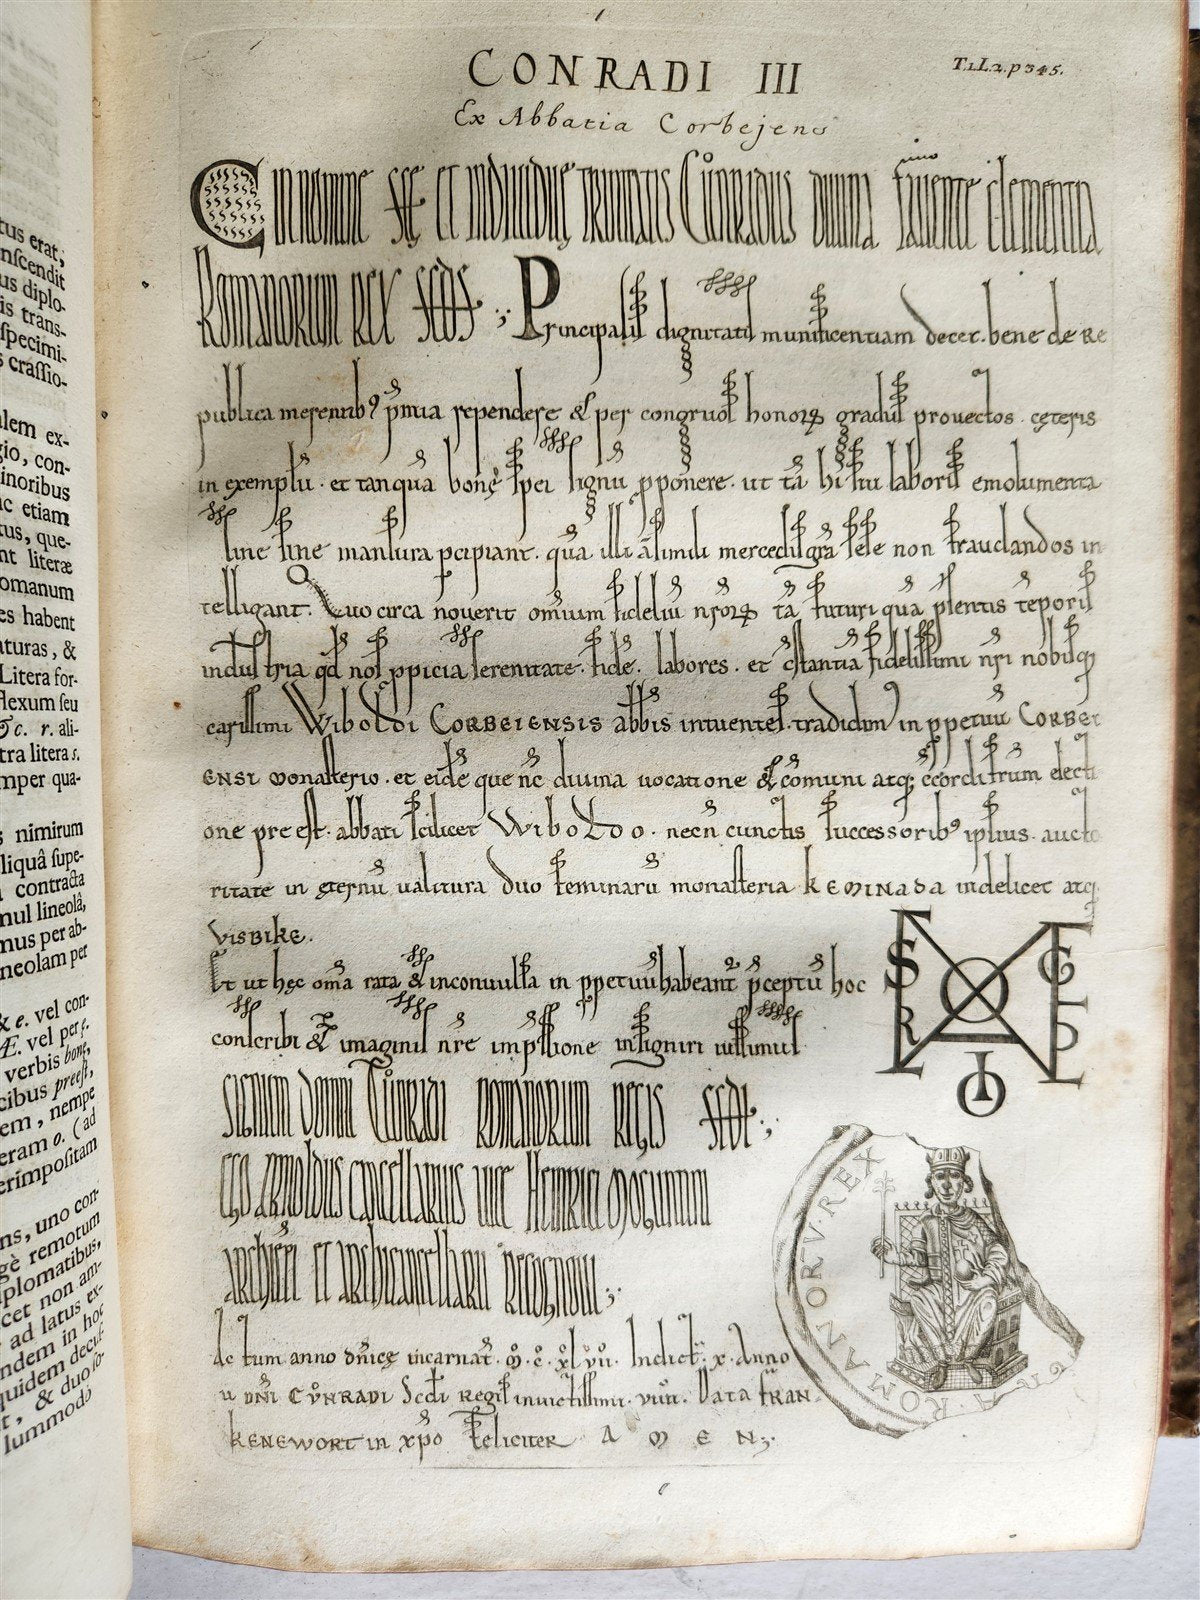 CONRADI III
T.1.L.2.p345.
Ex Abbatia Corbejens
C In nomine sce et individue trinitatis Cůnradus divina favente clementia
Romanorum rex scds ;, Principalis dignitatis munificentiam decet. bene de Re
publica merentibꝰ p̄mia rependere & per congruos honoꝝ gradus provectos. cęteris
in exemplū. et tanquā bonę spei signū pponere. ut tā hi sui laboris emolumenta
sine fine mansura pcipiant. quā illi assimili mercedis grā sese non fraudandos in
telligant. Quo circa noverit omīum fidelīu nr̄oꝝ tā futuri quā p̄sentis tēporis
industria qd nos ppicia serenitate. fidē. labores. et cstantiā fidelissimi nr̄i nobisq;
carissimi Wiboldi Corbeiensis abb̄is intuentes. tradidimꝰ in ppetuū Corbei
ensi monasterio. et eidē que nc̄ divina vocatione & cōmuni atq; ccordi frūm electi
one preest. abbati scilicet Wiboldo. necn̄ cunctis successoribꝰ ipsius. aucto
ritate in ęternū valitura duo feminarū monasteria Keminada videlicet atq;
Visbike.
Et ut hęc om̄a rata & inconvulsa in ppetuū habeant p̄ceptū hoc
conscribi & imaginis nr̄e impssione insigniri iussimus
S R G L D O I
Signum domni Cůnradi Romanorum regis scdi ;,
Ego Arnoldus cancellarius vice Heinrici Moguntini
archiep̄i et archicancellarii recognovi ;,
Actum anno dn̄icę incarnat̄. M̊. C̊. XL̊. VII̊. Indict̄. X. Anno
v̄ dn̄i Cůnradi Scdi Regis invictissimi. VIIII. Data fran
kenewort in xp̄o feliciter A M E N ;,
RA. ROMANORV. REX
tus erat,
nscendit
us diplo-
is trans-
specimi-
s crassio-
alem ex-
gio, con-
minoribus
c etiam
tus, que-
nt literæ
omanum
es habent
aturas, &
Litera for-
flexum seu
&c. r. ali-
tra litera s.
mper qua-
s nimirum
liquâ supe-
contracta
mul lineolâ,
mus per ab-
neolam per
& e. vel con-
Æ. vel per ę.
verbis bonę,
cibus preest,
em, nempe
eram o. (ad
erimpositam
ns, uno con-
gè remotum
iplomatibus,
cet non am-
ad latus ex-
endem in hoc
quidem decus-
t, & duo so-
lummodò